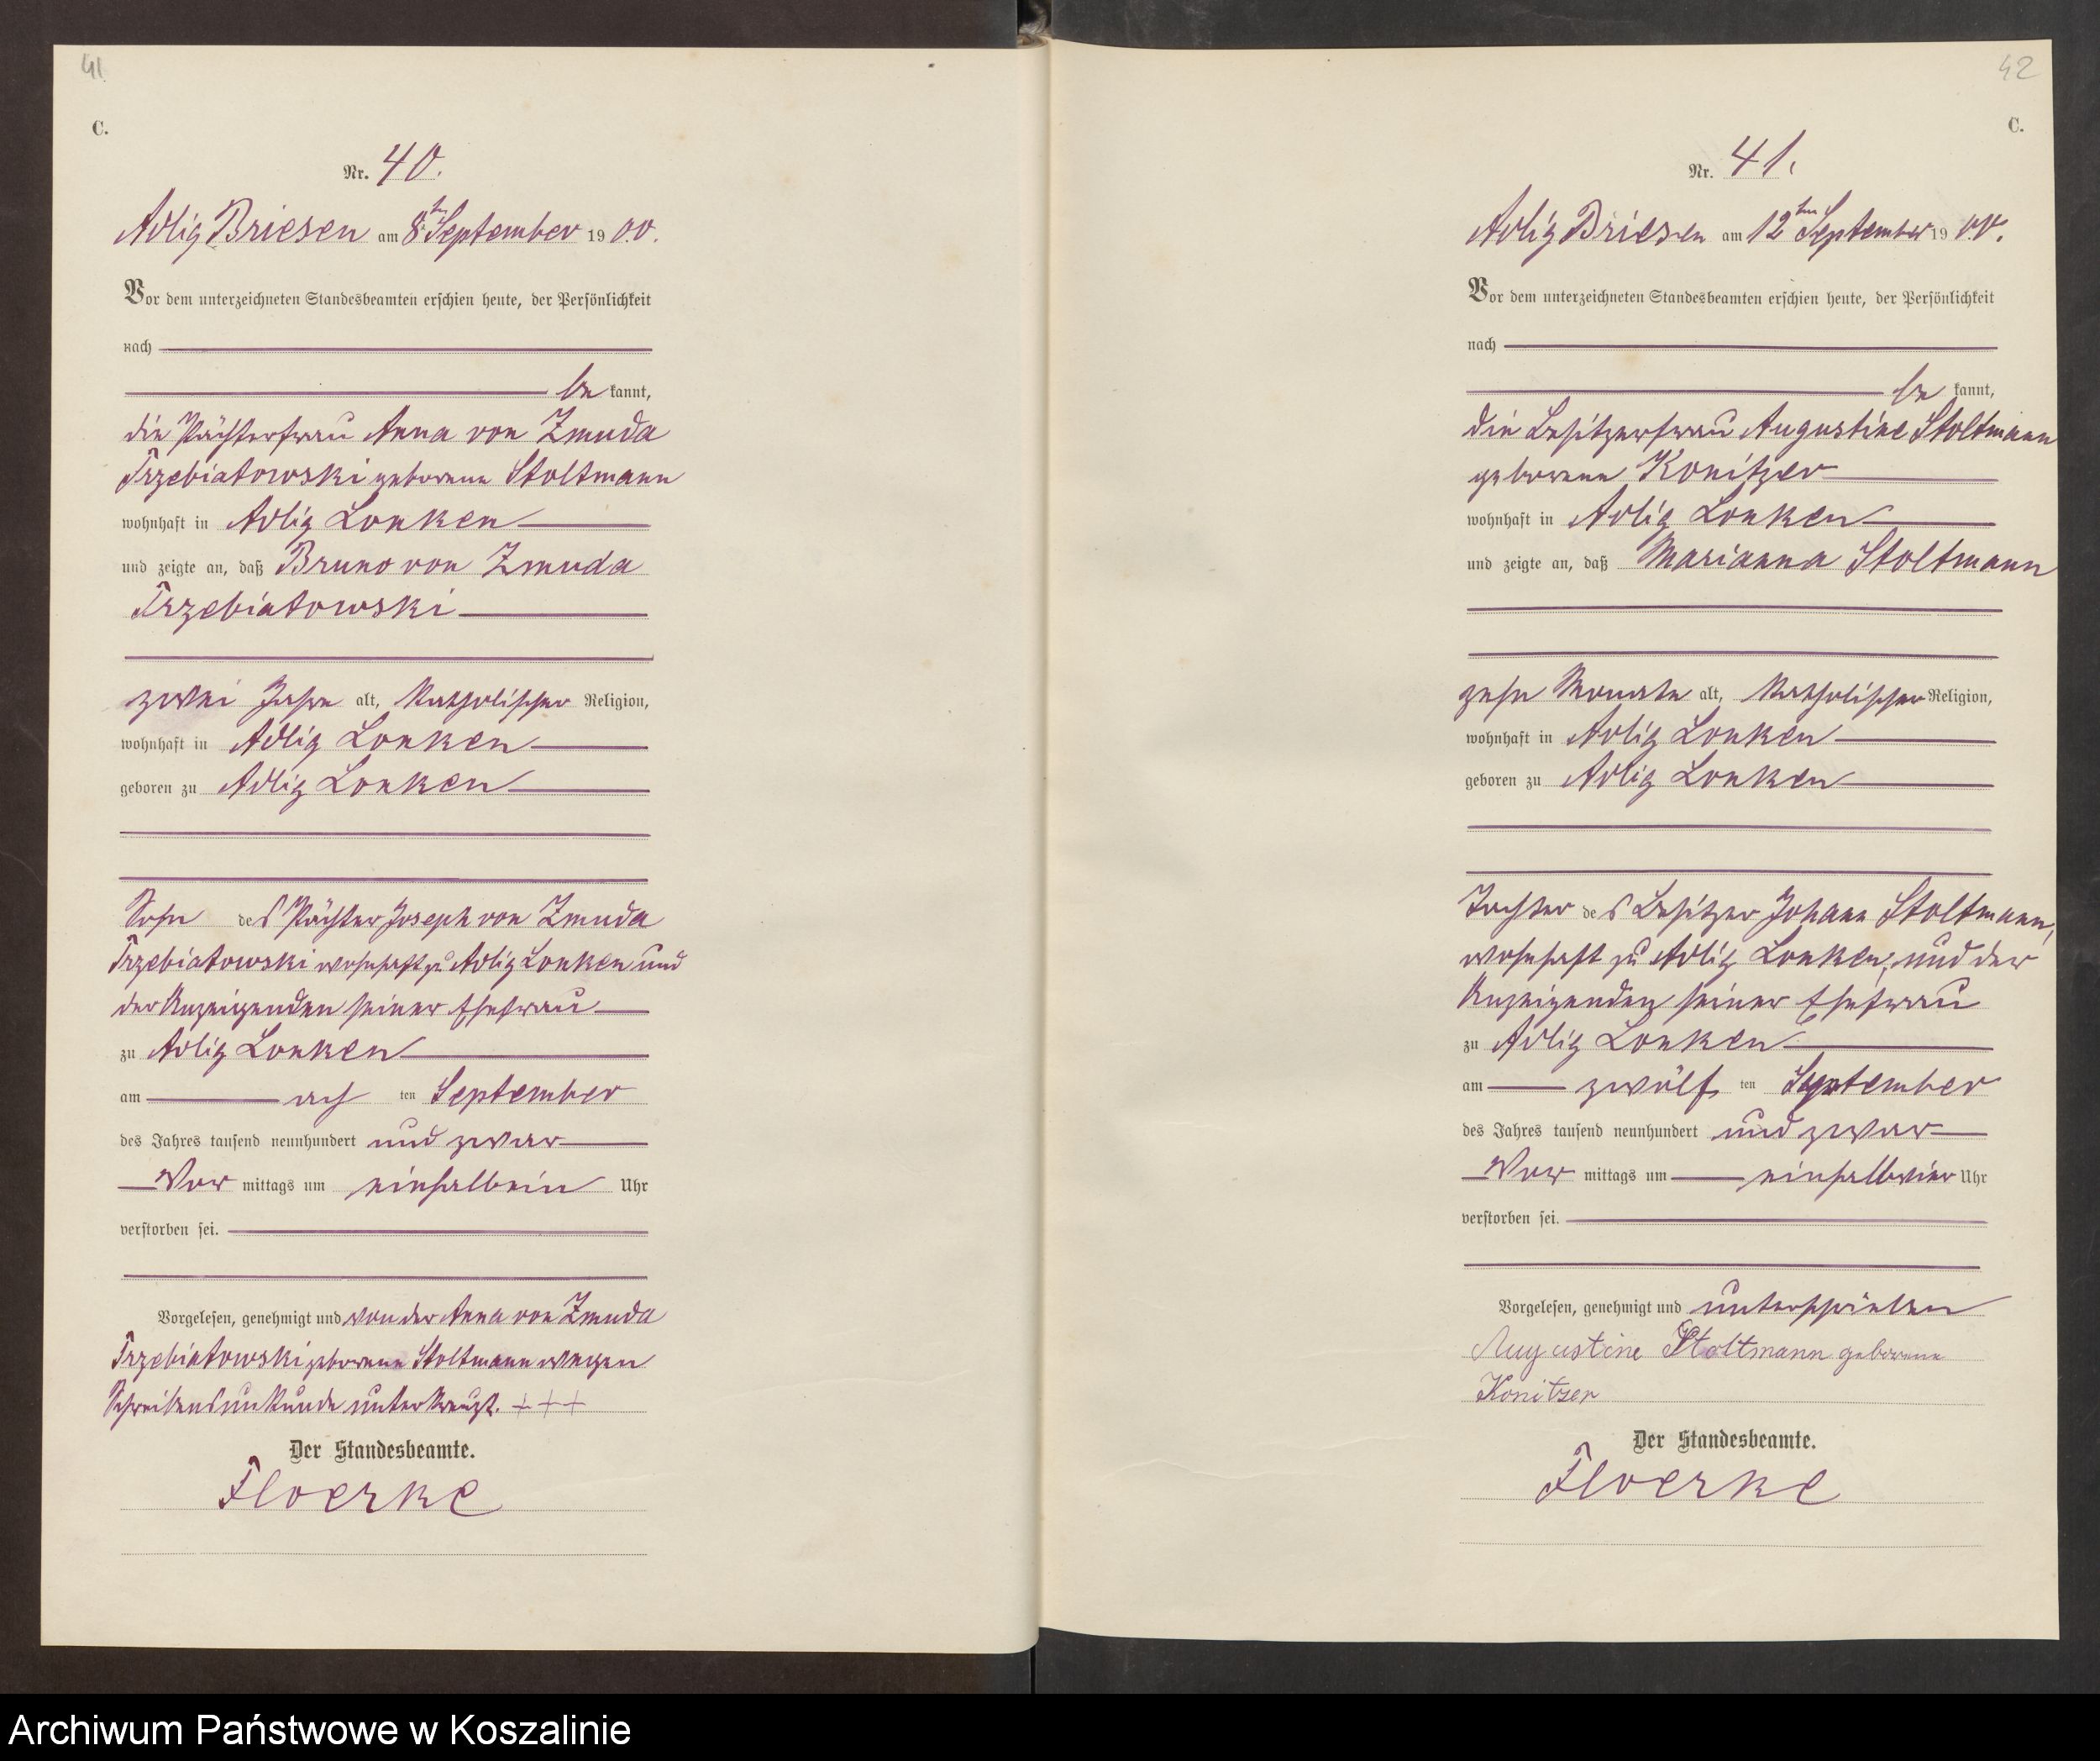 41
C.
Nr. 40.
Adlig Briesen am 8ten September 1900.
Vor dem unterzeichneten Standesbeamten erschien heute, der Persönlichkeit
nach
be kannt,
die Pächterfrau Anna von Zmuda
Trzebiatowski geborene Stoltmann
wohnhaft in Adlig Lonken
und zeigte an, daß Bruno von Zmuda
Trzebiatowski
zwei Jahre alt, katholischer Religion,
wohnhaft in Adlig Lonken
geboren zu Adlig Lonken
Sohn des Pächter Joseph von Zmuda
Trzebiatowski wohnhaft zu Adlig Lonken und
der Anzeigenden seiner Ehefrau
zu Adlig Lonken
am ach ten September
des Jahres tausend neunhundert und zwar
Vor mittags um einhalbein Uhr
verstorben sei.
Vorgelesen, genehmigt und von der Anna von Zmuda
Trzebiatowski geborene Stoltmann wegen
Schreibensunkunde unterkreuzt. +++
Der Standesbeamte.
Floerke
42
C.
Nr. 41.
Adlig Briesen am 12ten September 1900.
Vor dem unterzeichneten Standesbeamten erschien heute, der Persönlichkeit
nach
be kannt,
die Besitzerfrau Augustine Stoltmann
geborene Konitzer
wohnhaft in Adlig Lonken
und zeigte an, daß Marianna Stoltmann
zehn Monate alt, katholischer Religion,
wohnhaft in Adlig Lonken
geboren zu Adlig Lonken
Tochter des Besitzer Johann Stoltmann,
wohnhaft zu Adlig Lonken, und der
Anzeigenden seiner Ehefrau
zu Adlig Lonken
am zwölf ten September
des Jahres tausend neunhundert und zwar
Vor mittags um einhalbvier Uhr
verstorben sei.
Vorgelesen, genehmigt und unterschrieben
Augustine Stoltmann geborene
Konitzer
Der Standesbeamte.
Floerke
Archiwum Państwowe w Koszalinie